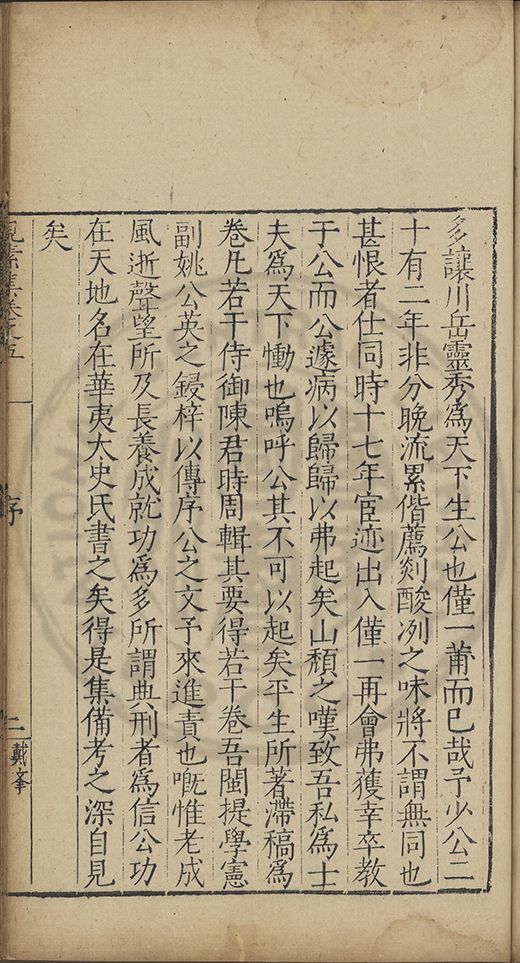 多讓川岳靈秀為天下生公也僅一莆而已哉予少公二
十有二年非分晚流累偕薦剡酸冽之味將不謂無同也
甚恨者仕同時十七年官迹出入僅一再會弗獲幸卒教
于公而公遽病以歸歸以弗起矣山頹之嘆致吾私為士
夫為天下慟也嗚呼公其不可以起矣平生所著滯稿為
卷凡若干侍御陳君時周輯其要得若干卷吾閩提學憲
副姚公英之鋟梓以傳序公之文予來進責也嘅惟老成
風逝聲望所及長養成就功為多所謂典刑者為信公功
在天地名在華夷太史氏書之矣得是集備考之深自見
矣
見素集卷之五
序
二
戴峯